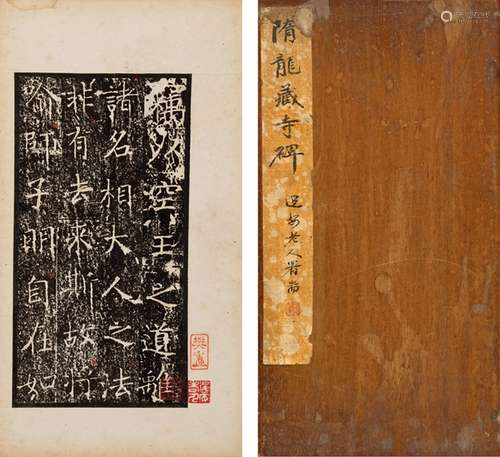 竊以空王之道離
諸名相大人之法
非有去來斯故將
喻師子明自在如
隋龍藏寺碑
老人署